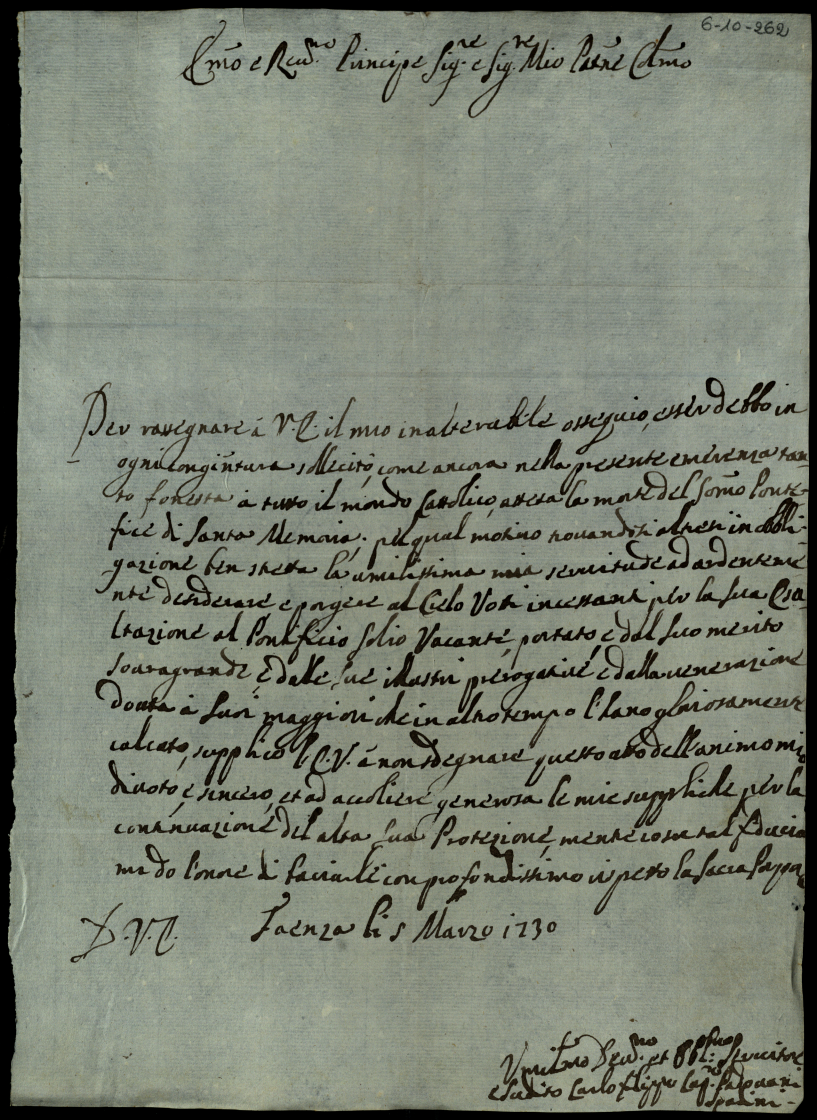 6-10-262
Emo e Reud.mo Principe Sig.re e Sig.re Mio Pat.ne Colmo
Per rassegnare à V.E. il mio inalterabile ossequio, esser debbo in
ogni congiuntura sollecito, come ancora nella presente emerenza tan-
to fonesta à tutto il mondo Cattolico, attesa la morte del Somo Ponte-
fice di Santa Memoria; pel qual motivo trouandosi altresi in obbli-
gazione ben stretta la umilissima mia seruitude ad ardenteme
nte desiderare e porgere al Cielo Voti incessanti per la sua Esa-
ltazione al Pontificio Solio Vacante, portato, e dal suo merito
souragrande, e dalle sue illustri prerogatiue, e dalla uenerazione
douuta à suoi maggiori che in altro tempo l'hano gloriosamente
calcato, supplico l'E.V. à non sdegnare questo atto dell'animo mio
diuoto, e sincero, et ad accoliere generosa le mie suppliche per la
continuazione del alta sua Protezione, mente con tal fiducia
mi do l'onore di baciarle con profondissimo rispetto la Sacra Porpora
D.V.E. Faenza li 5 Marzo 1730
Vmilmo Deu.mo et Obbl.mo Seruitore
e Sudito Carlo Filippo